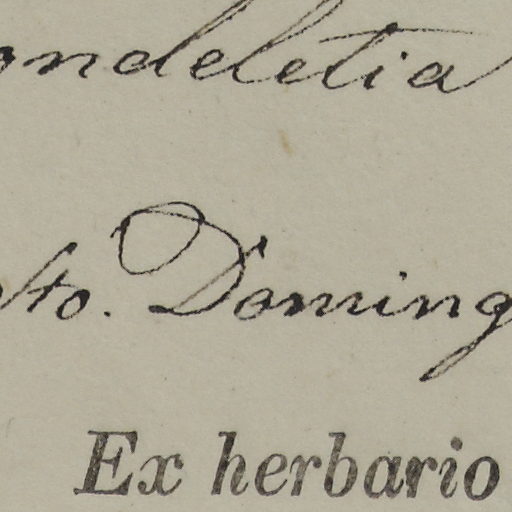 ondeletia
Sto. Doming
Ex herbario